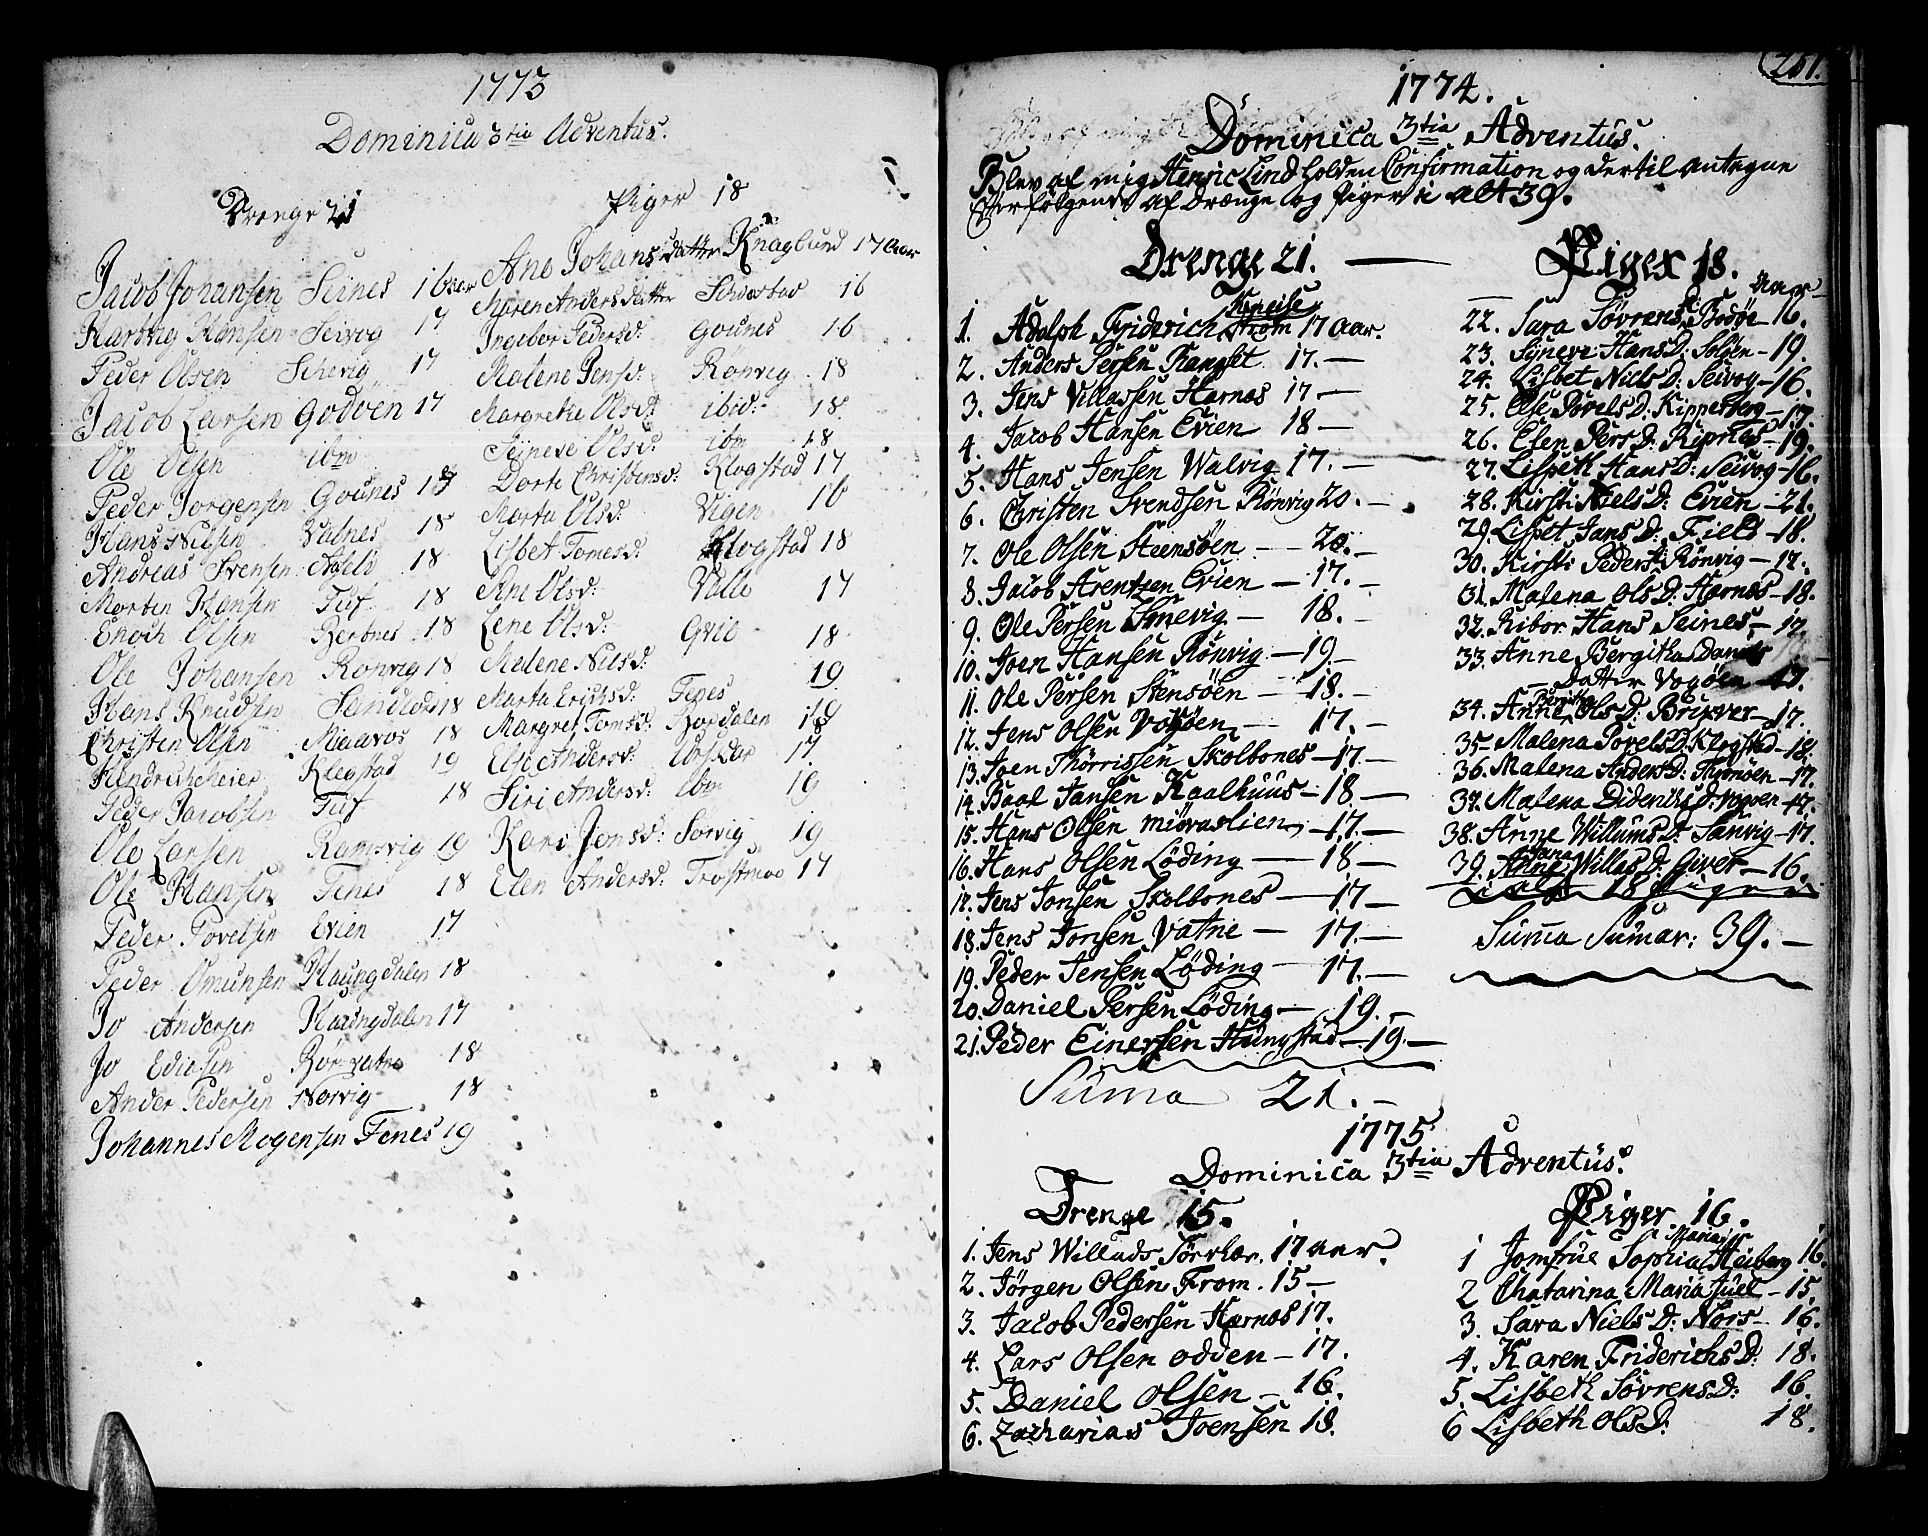 1773
Dominica 3tia Adventus.
Drenge 21
Jacob Johansen Seines 16 aar
Hartvig Hansen Seivog 17
Peder Olsen 17
Jacob Larsen Godöen 17
Ole Olsen ibm
Peder Jorgensen Godnes 18
Hans Nilsen Valnes 18
Andreas Svensen 18
Morten Hansen Tuf 18
Enoch Olsen Bertnes 18
Ole Johansen Ronvig 18
Hans Knudsen 18
Christen Olsen 18
Klegstad 19
Peder Jacobsen Tuf 18
Ole Larsen Ramsvig 19
Ole Hansen Fenes 18
Peder Povelsen Evien 17
Peder Omunsen Haungdalen 18
Jo Andersen Haungdalen 17
Jo 18
Ander Pedersen Norvig 18
Johannes Mogensen Fenes 19
Piger 18
Ane Johansdatter Knaglund 17 aar
Maren Andersdatter 16
Ingebor Pedersd: Godnes 16
Malene Jensd: Rönvig 18
Margrethe Olsd: ibid: 18
Sÿneve Olsd: ibm 18
Dorte Christensd: Klogstad 17
Marta Olsd: Vigen 16
Lisbet Tomesd: Klogstad 18
Ane Olsd: Valle 17
Lene Olsd: 18
Malene Nilsd: 19
Marta Erichsd: Fenes 19
Margret Tomsd: 18
Else Andersd: 17
Siri Andersd: ibm 19
Kari Jonsd: Sorvig 19
Elen Andersd: Trostmoe 17
1774.
Dominica 3tia Adventus.
Blev af mig Henric Lind holden Confirmation og dertil antagne
efterfölgende af Drænge og Piger i alt 39.
Drenge 21.
1. Adolph Friderich Ström 17 aar.
2. Anders Persen 17.—
3. Jens Villassen Hernes 17.—
4. Jacob Hansen Evien 18—
5. Hans Jensen Walvig 17.—
6. Christen Svendsen Rönvig 20.—
7. Ole Olsen Steensöen — 20.—
8. Jacob Arentzen Evien — 17.—
9. Ole Persen — 18.—
10. Joen Hansen Rönvig — 19.—
11. Ole Persen Stensöen — 18.—
12. Jens Olsen Vogöen — 17.—
13. Joen Thorrissen Skolbones — 17.—
14. Paal Jansen Kaalhuus — 18—
15. Hans Olsen Miövaslien — 17.—
16. Hans Olsen Löding — 18—
17. Jens Jonsen Skolbones — 17—
18. Jens Jonsen Vatne — 17.—
19. Peder Jensen Löding — 17.—
20. Daniel Persen Löding — 19.—
21. Peder Einersen Hungstad — 19.—
Suma 21.—
Piger 18.
aar
22. Sara Sövrens D: Bodöe 16.
23. Syneve Hans D: Solöen — 19.
24. Lisbet Niels D: Seivog — 16.
25. Else Povels D: Kipperberg — 17.
26. Elen Pers D: Ripnes — 19.
27. Lisbeth Hans D: Seivog — 16.
28. Kirsti Niels D: Evien — 21.
29. Lisbet Jans D: Field — 18.
30. Kirsti Peders D: Rönvig — 17.
31. Malena Ols D: Hernes — 18.
32. Ribor Hans Seines — 17.
33. Anne Bergitha Daniels
— Datter Vogöen — 17.
34. Anne Ols D: Brixver — 17.
35. Malena Povels D: Klegstad — 18.
36. Malena Anders D: Thornöen — 17.
37. Malena Diderichs D: Vogöen 17.
38. Anne Willums D: Sanvig — 17.
39. Willas D: Giver — 16.
Summa Sumar: 39.—
1775
Dominica 3tia Adventus.
Drenge 15.
1. Jens Willads 17 aar.
2. Jörgen Olsen From. 15—
3. Jacob Pedersen Hernes 17.
4. Lars Olsen Odden — 17.
5. Daniel Olsen — 16.
6. Zacharias Joensen 18.
Piger 16.
Maria
1 Jomfrue Sophia Heiberg 16.
2 Chatarina Maria Juel — 15.
3. Sara Niels D: Nors — 16.
4. Karen Friderichs D: 18.
5. Lisbeth Sövrens D: 16.
6 Lisbeth Ols D: 18.